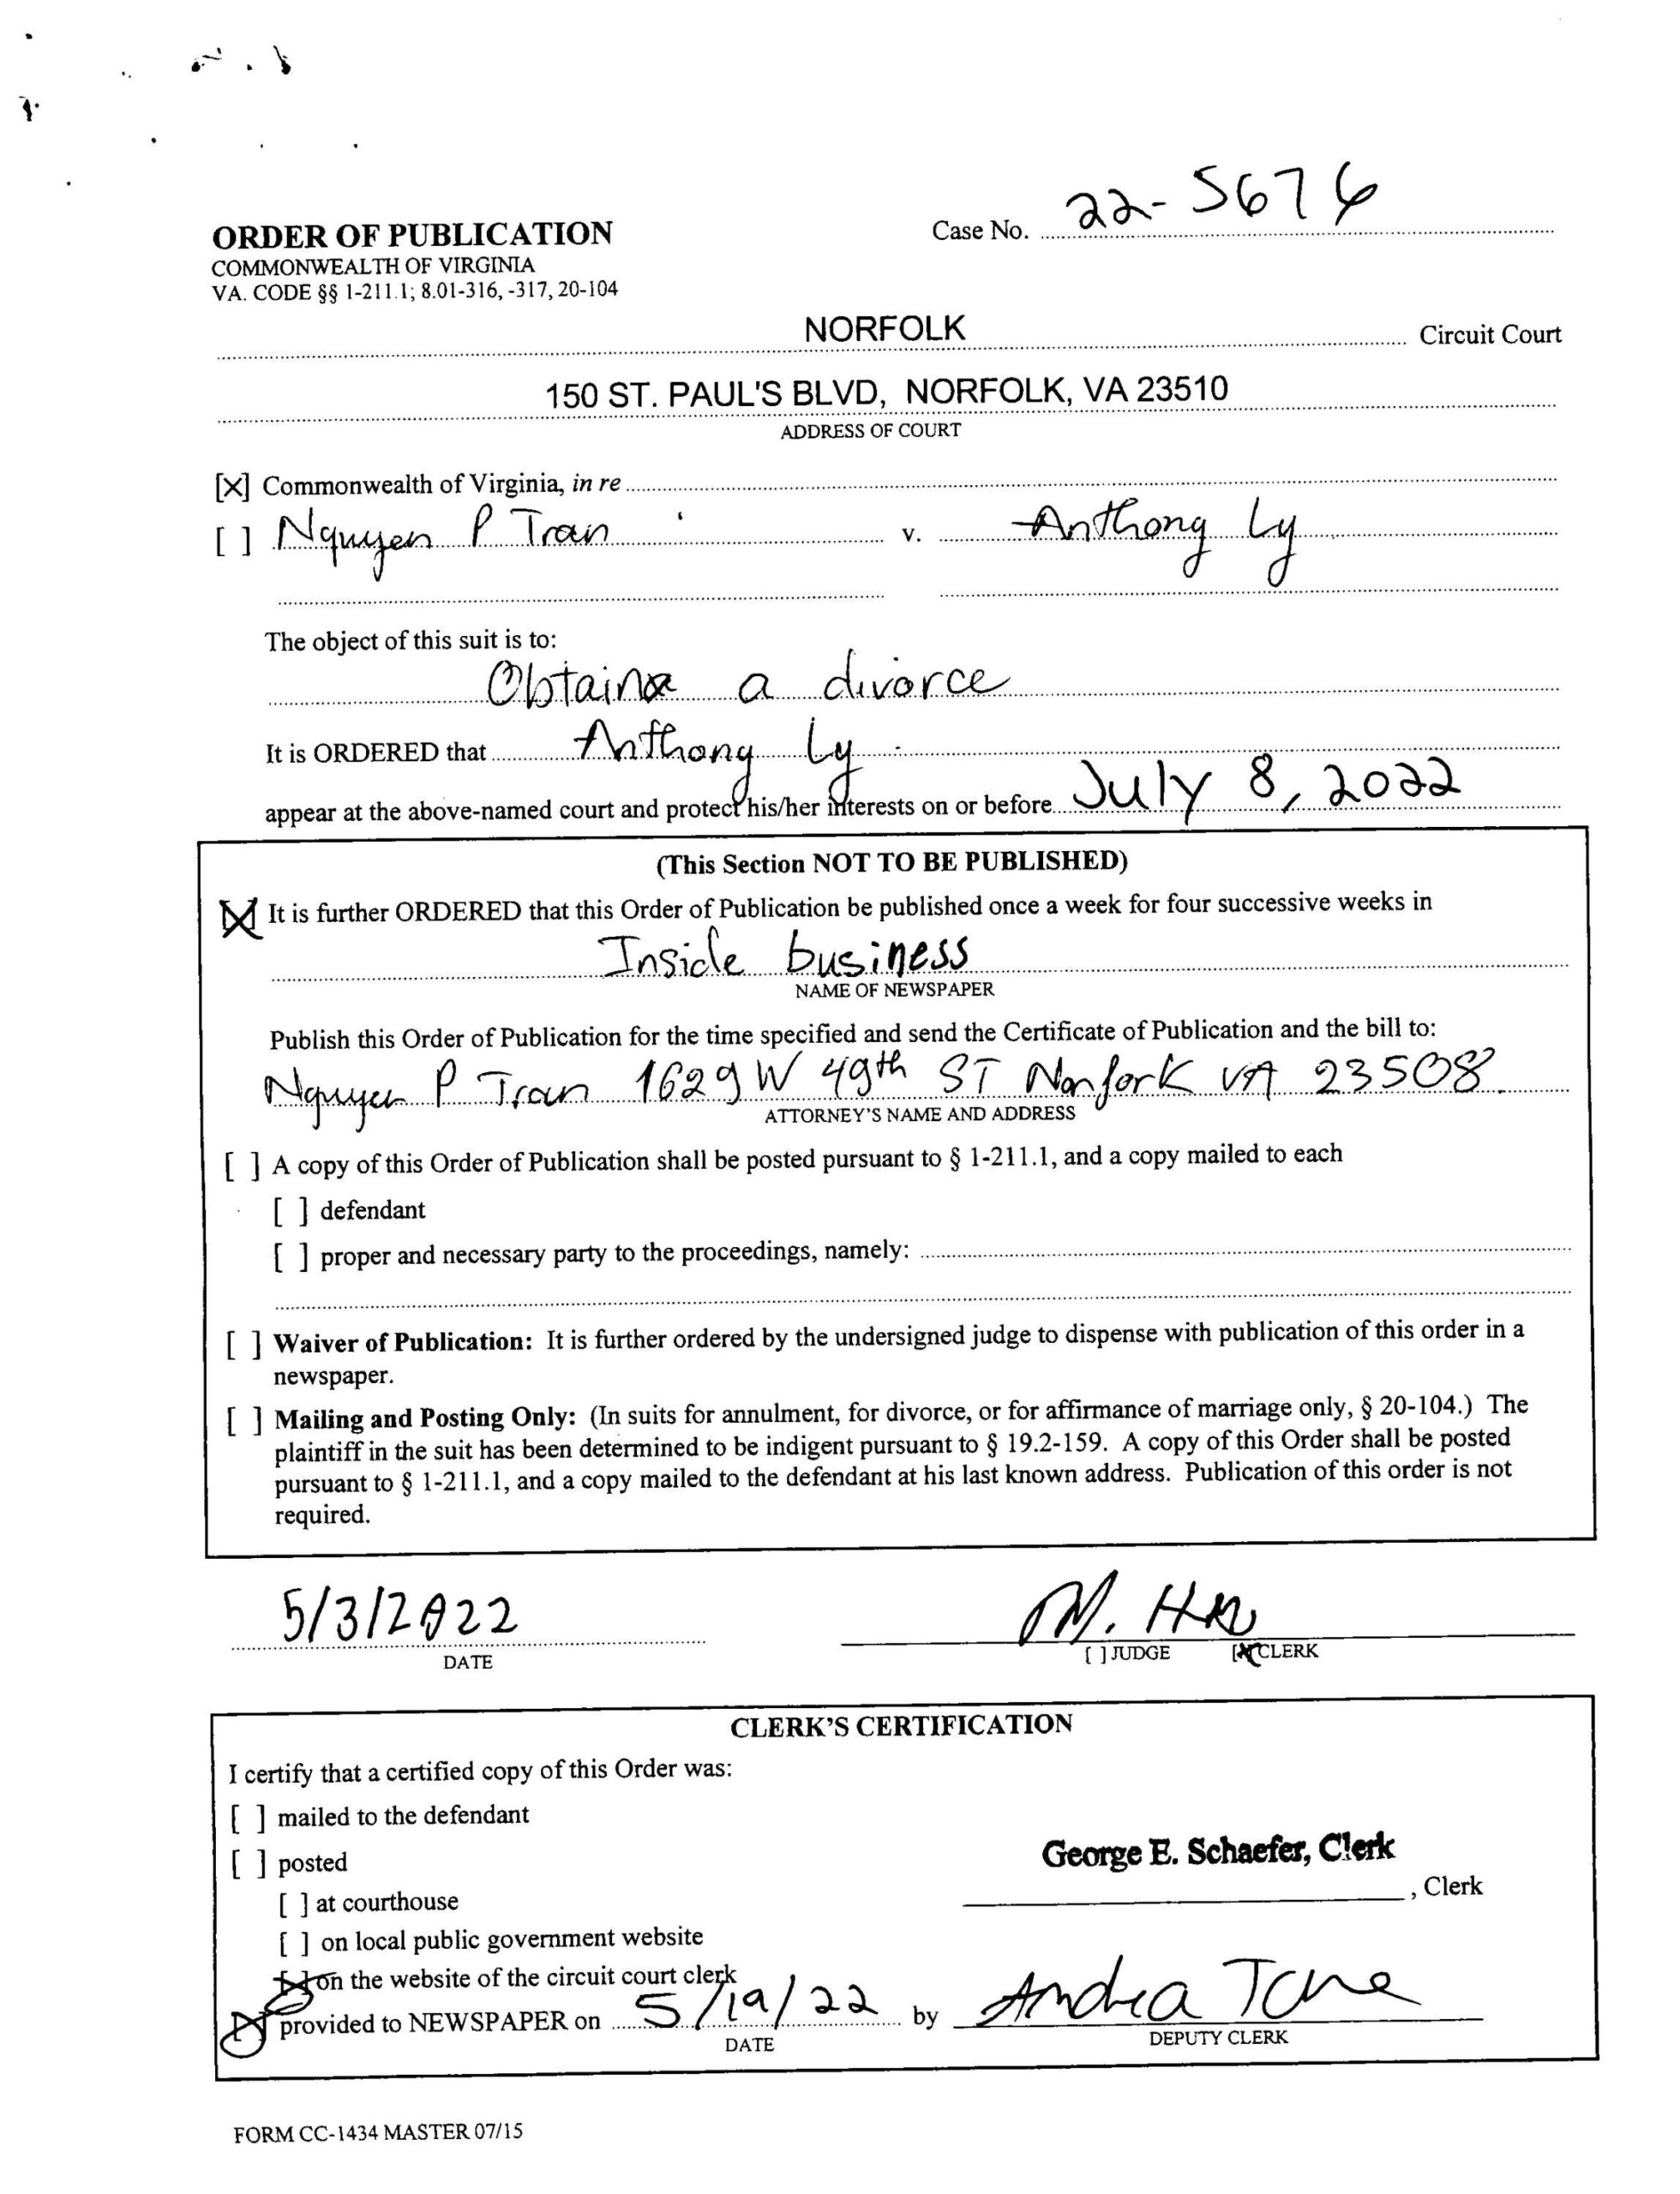 ORDER OF PUBLICATION
COMMONWEALTH OF VIRGINIA
VA. CODE §§ 1-211.1; 8.01-316, -317, 20-104
Case No. 22-5676
NORFOLK Circuit Court
150 ST. PAUL'S BLVD, NORFOLK, VA 23510
ADDRESS OF COURT
[X] Commonwealth of Virginia, in re
[ ] Nguyen P Tran v. Anthony Ly
The object of this suit is to:
Obtain a divorce
It is ORDERED that Anthony Ly
appear at the above-named court and protect his/her interests on or before July 8, 2022
(This Section NOT TO BE PUBLISHED)
[X] It is further ORDERED that this Order of Publication be published once a week for four successive weeks in
Inside business
NAME OF NEWSPAPER
Publish this Order of Publication for the time specified and send the Certificate of Publication and the bill to:
Nguyen P Tran 1629 W 49th ST Norfork VA 23508
ATTORNEY'S NAME AND ADDRESS
[ ] A copy of this Order of Publication shall be posted pursuant to § 1-211.1, and a copy mailed to each
[ ] defendant
[ ] proper and necessary party to the proceedings, namely:
[ ] Waiver of Publication: It is further ordered by the undersigned judge to dispense with publication of this order in a
newspaper.
[ ] Mailing and Posting Only: (In suits for annulment, for divorce, or for affirmance of marriage only, § 20-104.) The
plaintiff in the suit has been determined to be indigent pursuant to § 19.2-159. A copy of this Order shall be posted
pursuant to § 1-211.1, and a copy mailed to the defendant at his last known address. Publication of this order is not
required.
5/3/2022 M.
DATE [ ] JUDGE [X] CLERK
CLERK'S CERTIFICATION
I certify that a certified copy of this Order was:
[ ] mailed to the defendant
[ ] posted
George E. Schaefer, Clerk
, Clerk
[ ] at courthouse
[ ] on local public government website
[X] on the website of the circuit court clerk
[X] provided to NEWSPAPER on 5/19/22 by Andrea
DATE DEPUTY CLERK
FORM CC-1434 MASTER 07/15